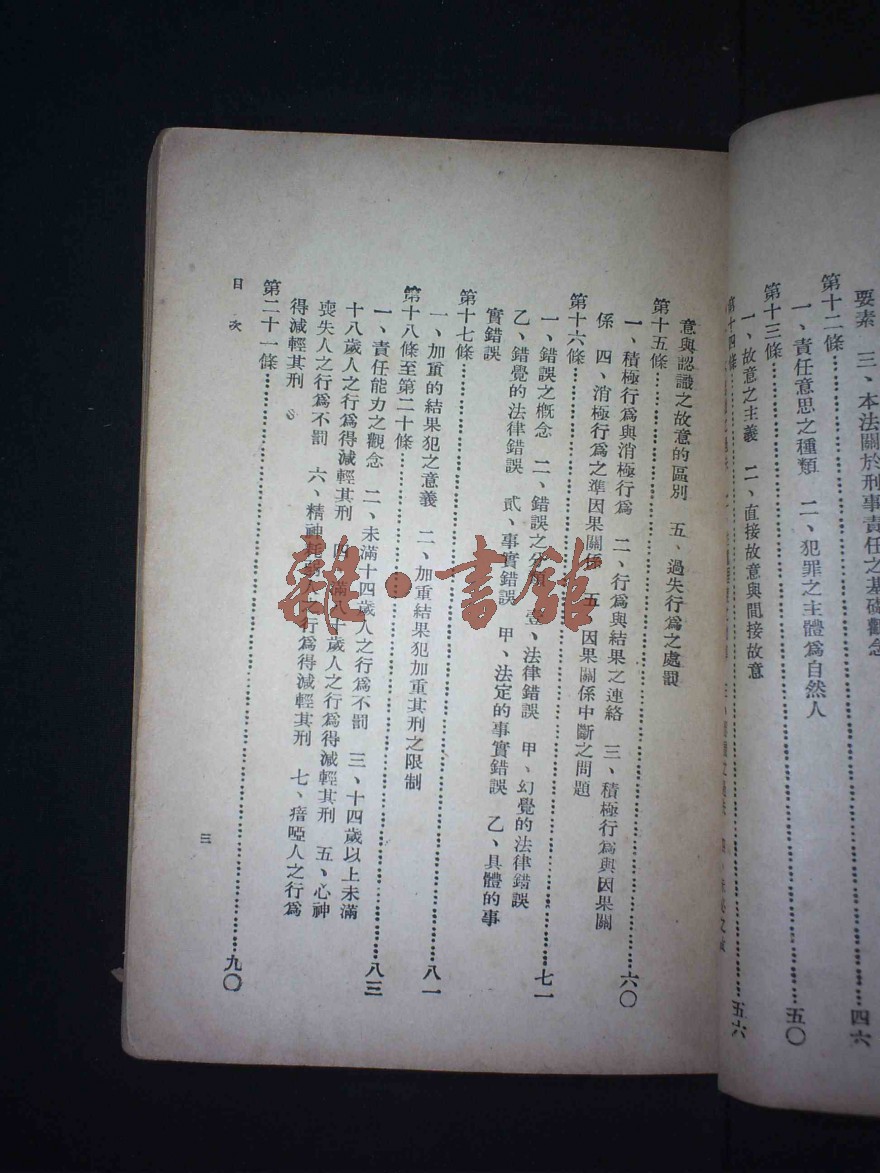 要素　三、本法關於刑事責任之基礎觀念
第十二條……四六
一、責任意思之種類　二、犯罪之主體爲自然人
第十三條……五〇
一、故意之主義　二、直接故意與間接故意
第十四條……五六
意與認識之故意的區別　五、過失行爲之處罰
第十五條……六〇
一、積極行爲與消極行爲　二、行爲與結果之連絡　三、積極行爲與因果關
係　四、消極行爲之準因果關係　五、因果關係中斷之問題
第十六條……七一
一、錯誤之概念　二、錯誤之分類　壹、法律錯誤　甲、幻覺的法律錯誤
乙、錯覺的法律錯誤　貳、事實錯誤　甲、法定的事實錯誤　乙、具體的事
實錯誤
第十七條……八一
一、加重的結果犯之意義　二、加重結果犯加重其刑之限制
第十八條至第二十條……八三
一、責任能力之觀念　二、未滿十四歲人之行爲不罰　三、十四歲以上未滿
十八歲人之行爲得減輕其刑　四、滿八十歲人之行爲得減輕其刑　五、心神
喪失人之行爲不罰　六、精神耗弱人之行爲得減輕其刑　七、瘖啞人之行爲
得減輕其刑
第二十一條……九〇
目次
三
雜·書館